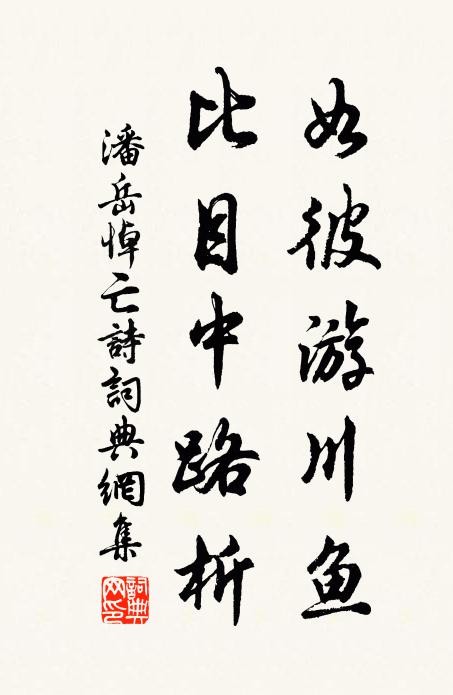 如彼游川鱼
比目中路析
潘岳悼亡詩詞典網集
詞典網印